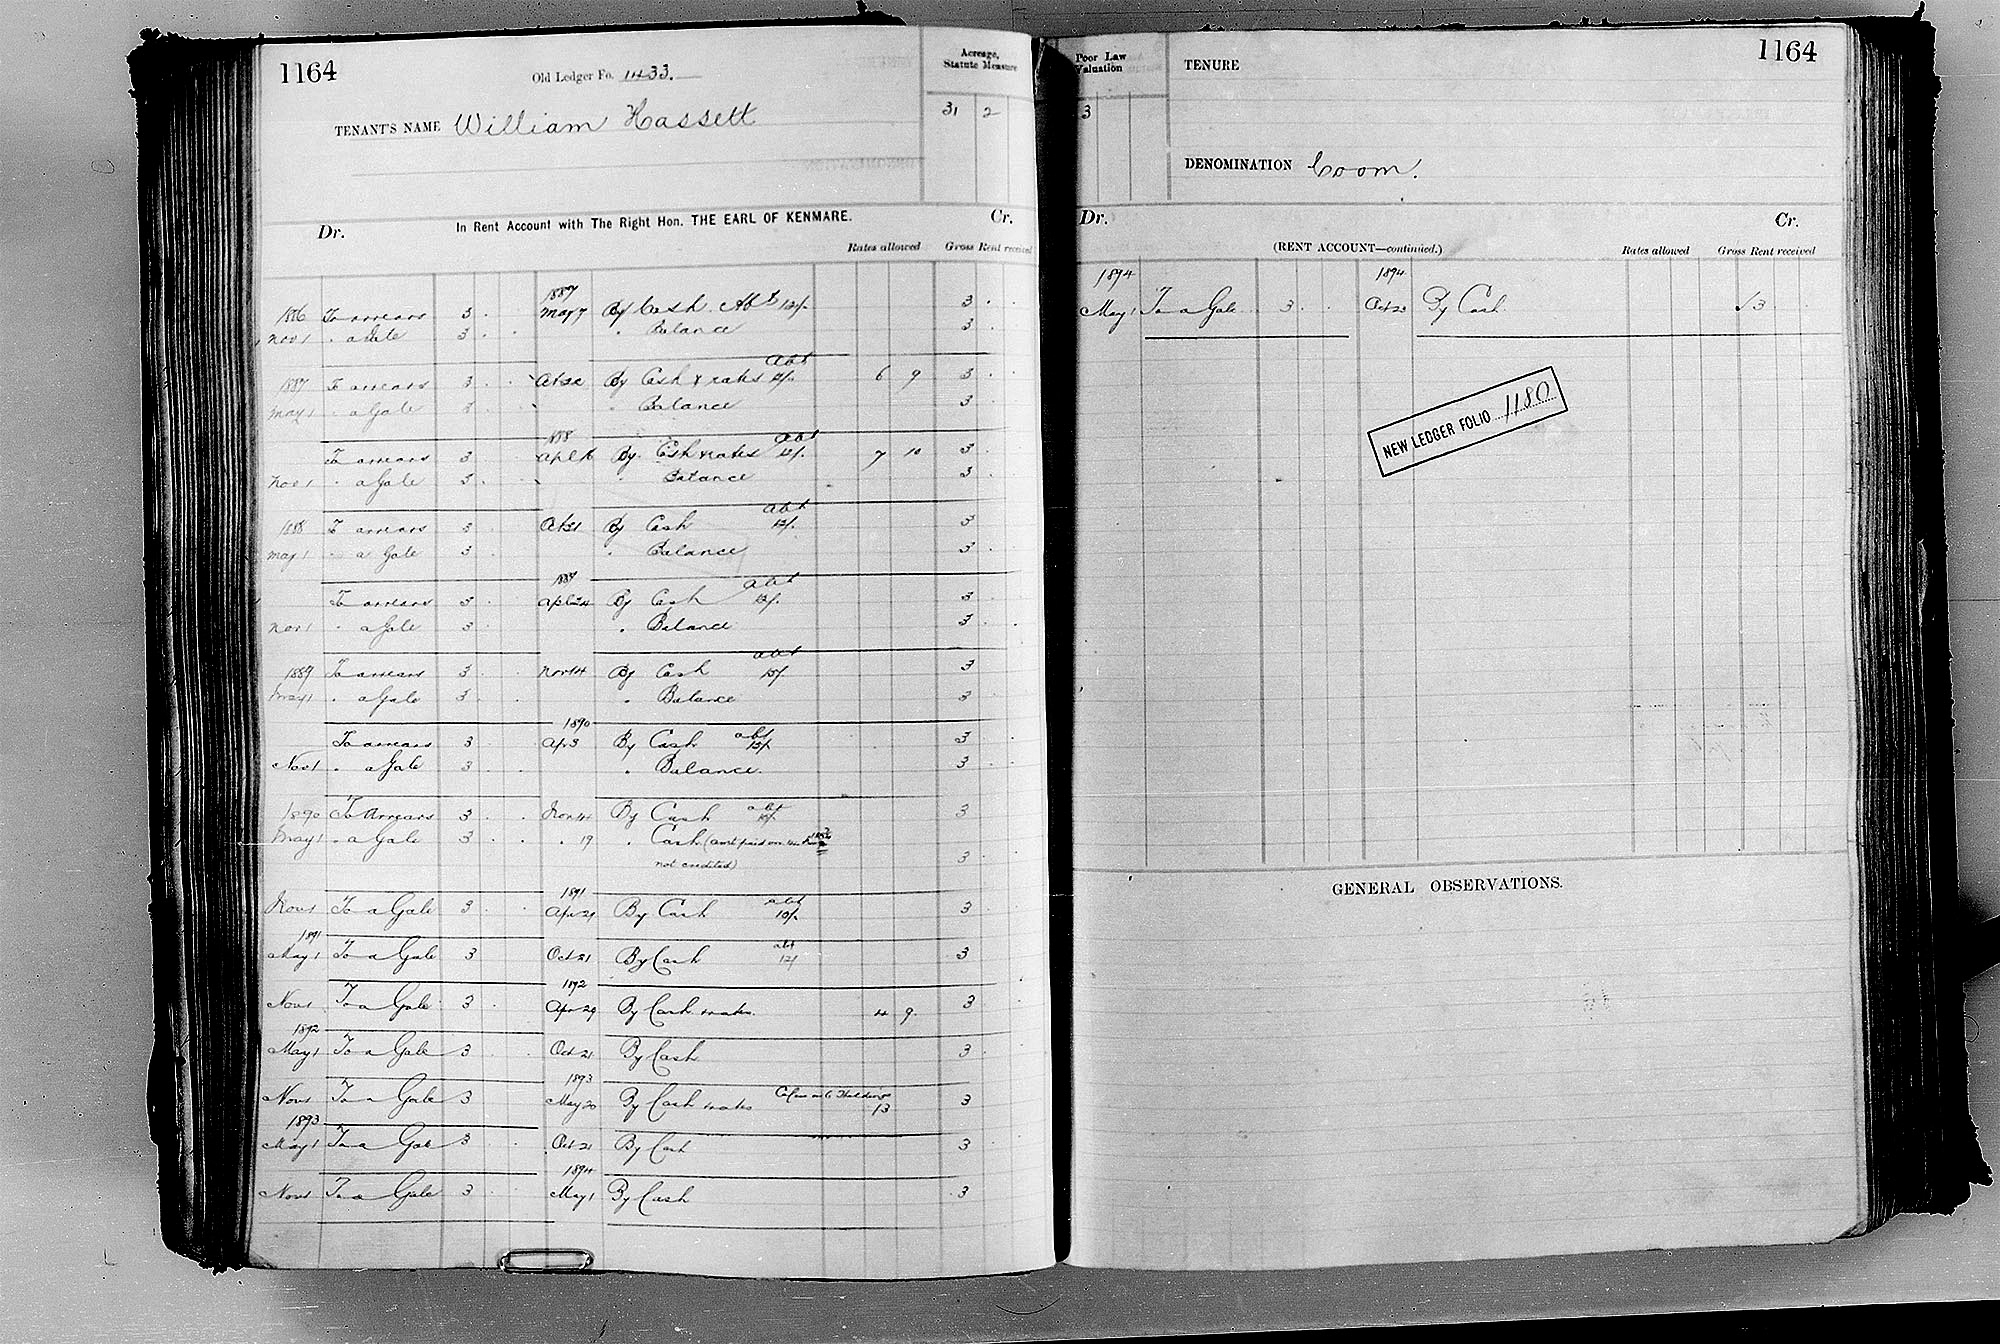 1164
Old Ledger Fo. 1433.
Acreage,
Statute Measure
TENANT'S NAME William Hassett
31 2
Dr. In Rent Account with The Right Hon. THE EARL OF KENMARE. Cr.
Rates allowed Gross Rent received
1887
1886 To arrears 3 May 7 By Cash Abt 12/. 3
Nov 1 " a Gale 3 " Balance 3
abt
1887 To arrears 3 By Cash & rates 12/. 6 9 3
May 1 " a Gale 3 " Balance 3
1888 abt
To arrears 3 By Cash & rates 12/. 7 10 3
Nov 1 " a Gale 3 " Balance 3
abt
1888 To arrears 3 Oct 31 By Cash 12/. 3
May 1 " a Gale 3 " Balance 3
1889 abt
To arrears 3 Apl 24 By Cash 12/. 3
Nov 1 " a Gale 3 " Balance 3
abt
1889 To arrears 3 Nov 14 By Cash 3
May 1 " a Gale 3 " Balance 3
1890
To arrears 3 Apr 3 By Cash abt 3
Nov 1 " a Gale 3 " Balance. 3
1890 To Arrears 3 Nov 14 By Cash abt 3
May 1 " a Gale 3 " 19 " Cash (amt paid on
not credited) 3
1891
Nov 1 To a Gale 3 Apr 29 By Cash abt 10/. 3
1891
May 1 To a Gale 3 Oct 21 By Cash abt 12/ 3
1892
Nov 1 To a Gale 3 Apr 29 By Cash & rates. 4 9 3
1892
May 1 To a Gale 3 Oct 21 By Cash 3
1893
Nov 1 To a Gale 3 May 20 By Cash & rates Holdings 13 3
1893
May 1 To a Gale 3 Oct 21 By Cash 3
1894
Nov 1 To a Gale 3 May 1 By Cash 3
Poor Law
Valuation
3
TENURE
1164
DENOMINATION Coom.
Dr. Cr.
(RENT ACCOUNT—continued.) Rates allowed Gross Rent received
1894 1894
May 1 To a Gale 3 Oct 23 By Cash. 3
NEW LEDGER FOLIO 1180
GENERAL OBSERVATIONS.